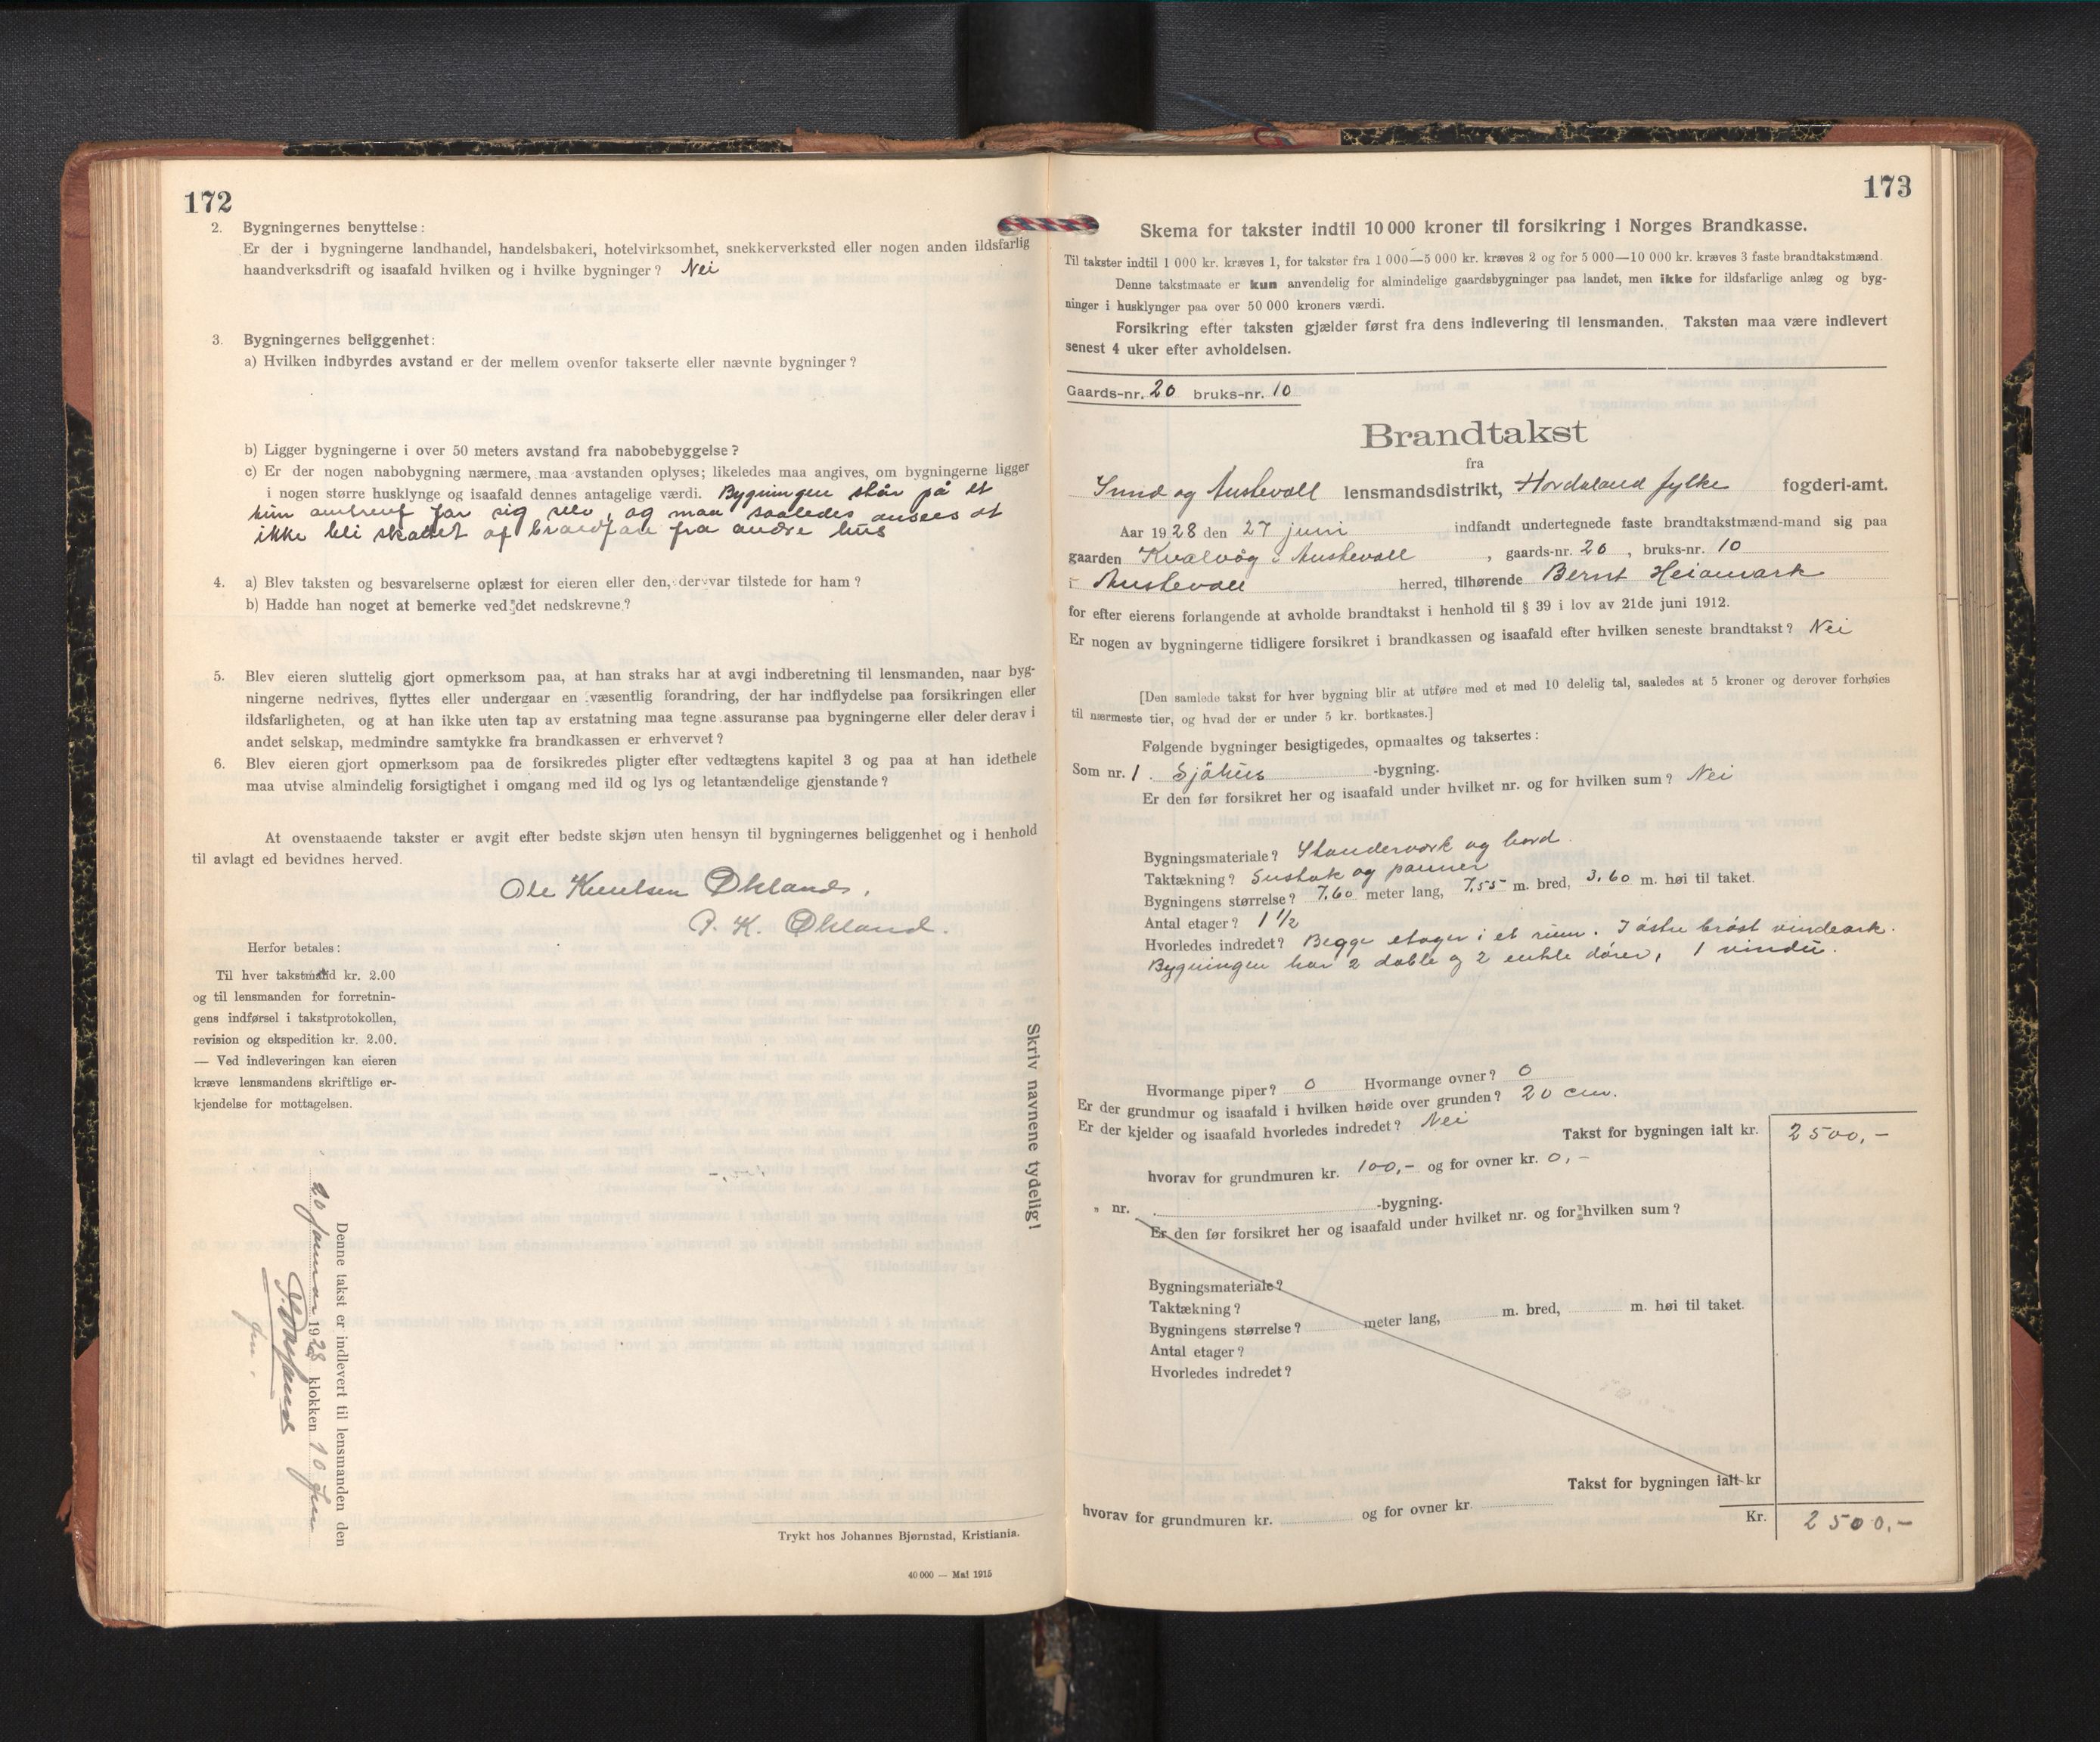 172
2. Bygningernes benyttelse:
Er der i bygningerne landhandel, handelsbakeri, hotelvirksomhet, snekkerverksted eller nogen anden ildsfarlig
haandverksdrift og isaafald hvilken og i hvilke bygninger? Nei
3. Bygningernes beliggenhet:
a) Hvilken indbyrdes avstand er der mellem ovenfor takserte eller nævnte bygninger?
b) Ligger bygningerne i over 50 meters avstand fra nabobebyggelse?
c) Er der nogen nabobygning nærmere, maa avstanden oplyses; likeledes maa angives, om bygningerne ligger
i nogen større husklynge og isaafald dennes antagelige værdi. Bygningen står på et
for sig selv, og maa saaledes ansees at
ikke bli skattet af brandfare fra andre hus
4. a) Blev taksten og besvarelserne oplæst for eieren eller den, der var tilstede for ham?
b) Hadde han noget at bemerke ved det nedskrevne?
5. Blev eieren sluttelig gjort opmerksom paa, at han straks har at avgi indberetning til lensmanden, naar byg-
ningerne nedrives, flyttes eller undergaar en væsentlig forandring, der har indflydelse paa forsikringen eller
ildsfarligheten, og at han ikke uten tap av erstatning maa tegne assuranse paa bygningerne eller deler derav i
andet selskap, medmindre samtykke fra brandkassen er erhvervet?
6. Blev eieren gjort opmerksom paa de forsikredes pligter efter vedtægtens kapitel 3 og paa at han idethele
maa utvise almindelig forsigtighet i omgang med ild og lys og letantændelige gjenstande?
At ovenstaaende takster er avgit efter bedste skjøn uten hensyn til bygningernes beliggenhet og i henhold
til avlagt ed bevidnes herved.
Ole Knutsen Økland.
P. K. Økland.
Herfor betales:
Til hver takstmand kr. 2.00
og til lensmanden for forretnin-
gens indførsel i takstprotokollen,
revision og ekspedition kr. 2.00.
— Ved indleveringen kan eieren
kræve lensmandens skriftlige er-
kjendelse for mottagelsen.
Skriv navnene tydelig!
Denne takst er indlevert til lensmanden den
20 januar 1928 klokken 10
Trykt hos Johannes Bjørnstad, Kristiania.
40 000 — Mai 1915
173
Skema for takster indtil 10 000 kroner til forsikring i Norges Brandkasse.
Til takster indtil 1 000 kr. kræves 1, for takster fra 1 000—5 000 kr. kræves 2 og for 5 000—10 000 kr. kræves 3 faste brandtakstmænd.
Denne takstmaate er kun anvendelig for almindelige gaardsbygninger paa landet, men ikke for ildsfarlige anlæg og byg-
ninger i husklynger paa over 50 000 kroners værdi.
Forsikring efter taksten gjælder først fra dens indlevering til lensmanden. Taksten maa være indlevert
senest 4 uker efter avholdelsen.
Gaards-nr. 20 bruks-nr. 10
Brandtakst
fra
Sund og Austevoll lensmandsdistrikt, Hordaland fylke fogderi-amt.
Aar 1928 den 27 juni indfandt undertegnede faste brandtakstmænd-mand sig paa
gaarden Kvalvåg i Austevoll, gaards-nr. 20, bruks-nr. 10
i Austevoll herred, tilhørende Bernt Heiamark
for efter eierens forlangende at avholde brandtakst i henhold til § 39 i lov av 21de juni 1912.
Er nogen av bygningerne tidligere forsikret i brandkassen og isaafald efter hvilken seneste brandtakst? Nei
[Den samlede takst for hver bygning blir at utføre med et med 10 delelig tal, saaledes at 5 kroner og derover forhøies
til nærmeste tier, og hvad der er under 5 kr. bortkastes.]
Følgende bygninger besigtigedes, opmaaltes og taksertes:
Som nr. 1. Sjöhus -bygning.
Er den før forsikret her og isaafald under hvilket nr. og for hvilken sum? Nei
Bygningsmateriale? Standerværk og bord.
Taktækning? Sustak og panner
Bygningens størrelse? 7.60 meter lang, 7.55 m. bred, 3.60 m. høi til taket.
Antal etager? 1 1/2
Hvorledes indredet? Begge etager i et rum. I østre bröst vindeark.
Bygningen har 2 doble og 2 enkle dører, 1 vindu.
Hvormange piper? 0 Hvormange ovner? 0
Er der grundmur og isaafald i hvilken høide over grunden? 20 cm.
Er der kjelder og isaafald hvorledes indredet? Nei
Takst for bygningen ialt kr. 2500,-
hvorav for grundmuren kr. 100,- og for ovner kr. 0,-
„ nr. -bygning.
Er den før forsikret her og isaafald under hvilket nr. og for hvilken sum?
Bygningsmateriale?
Taktækning?
Bygningens størrelse? meter lang, m. bred, m. høi til taket.
Antal etager?
Hvorledes indredet?
Takst for bygningen ialt kr
hvorav for grundmuren kr. og for ovner kr.
Kr. 2500,-